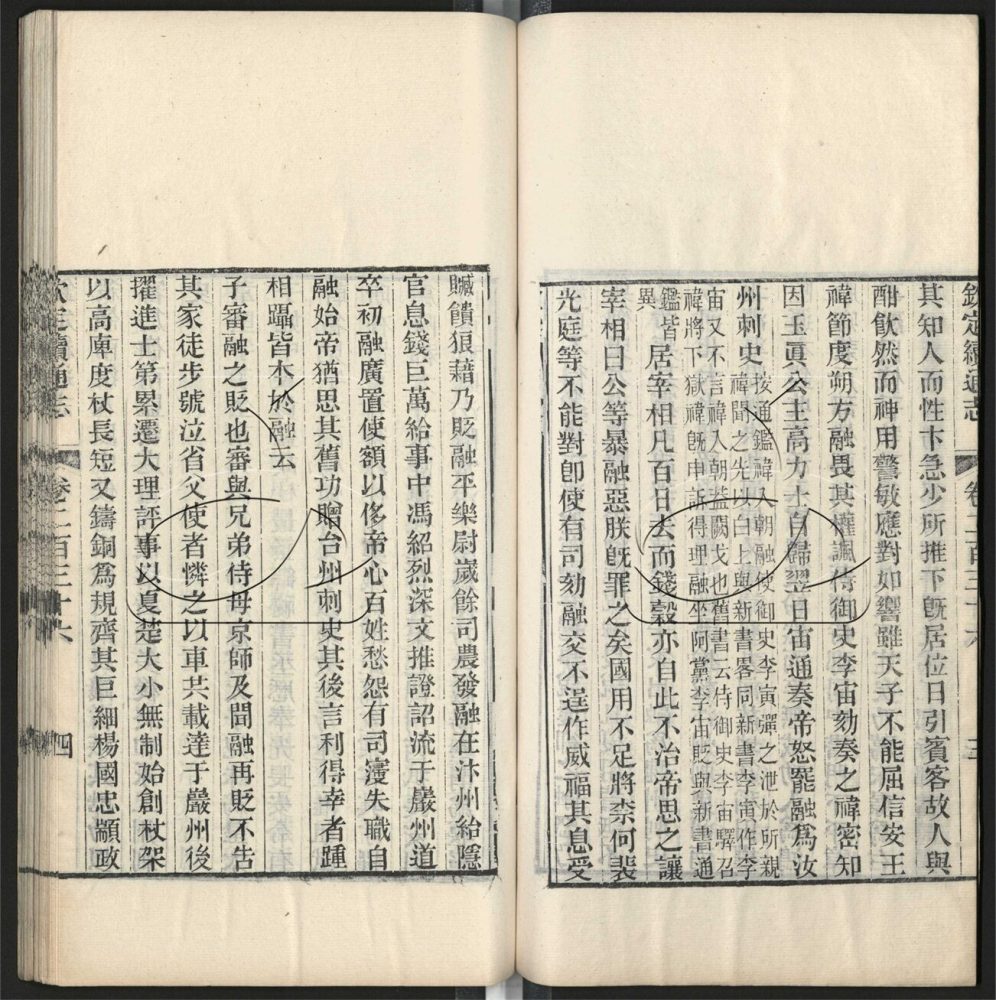 欽定續通志 卷二百三十六 三
其知人而性卞急少所推下旣居位日引賓客故人與
酣飲然而神用警敏應對如響雖天子不能屈信安王
禕節度朔方融畏其權諷侍御史李宙劾奏之禕密知
因玉眞公主高力士自歸翌日宙通奏帝怒罷融爲汝
州刺史
按通鑑禕入朝融使御史李寅彈之泄於所親
禕聞之先以白上與新書畧同新書李寅作李
宙又不言禕入朝益闕戈也舊書云侍御史李宙驛召
禕將下獄禕旣申訴得理融坐阿黨李宙貶與新書通
鑑皆
異
居宰相凡百日去而錢穀亦自此不治帝思之讓
宰相曰公等暴融惡朕旣罪之矣國用不足將柰何裴
光庭等不能對卽使有司劾融交不逞作威福其息受
贓饋狼藉乃貶融平樂尉歲餘司農發融在汴州給隱
官息錢巨萬給事中馮紹烈深文推證詔流于巖州道
卒初融廣置使額以侈帝心百姓愁怨有司寖失職自
融始帝猶思其舊功贈台州刺史其後言利得幸者踵
相躡皆本於融云
子審融之貶也審與兄弟侍母京師及聞融再貶不告
其家徒步號泣省父使者憐之以車共載達于巖州後
擢進士第累遷大理評事以夏楚大小無制始創杖架
以高庳度杖長短又鑄銅爲規齊其巨細楊國忠顓政
欽定續通志 卷二百三十六 四